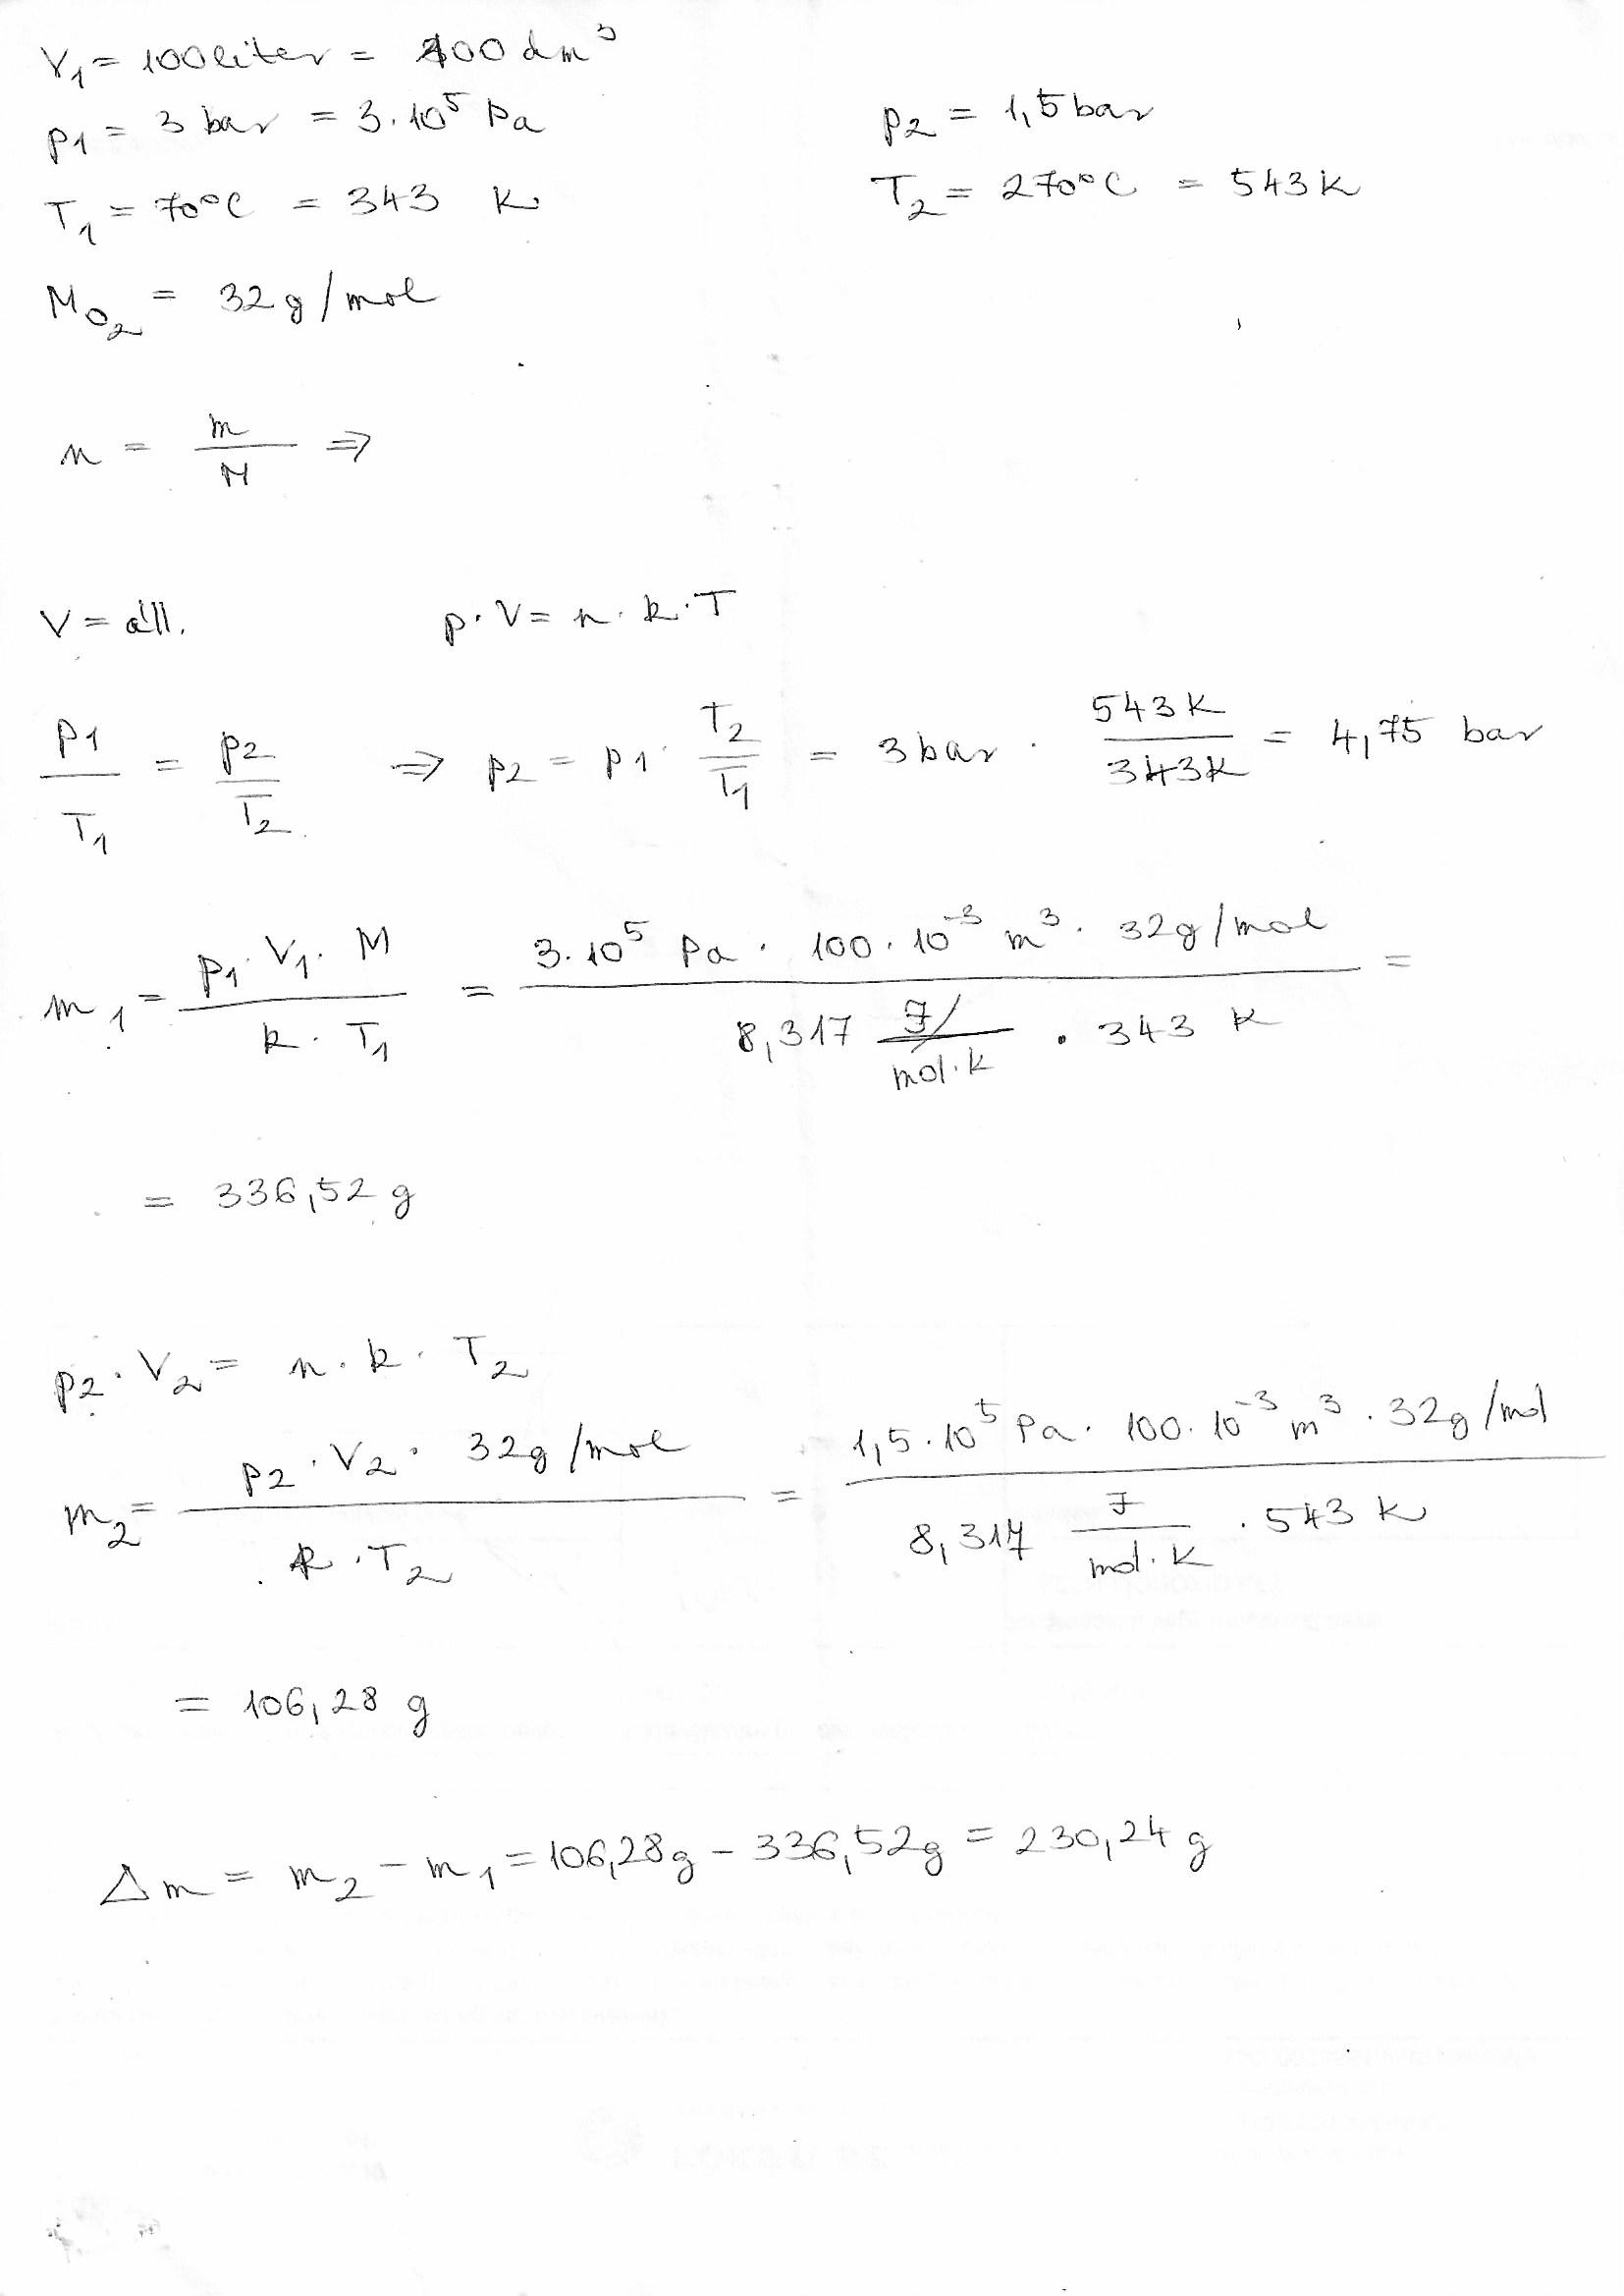 V₁ = 100 liter = 100 dm³
p1 = 3 bar = 3·10⁵ Pa
p2 = 1,5 bar
T₁ = 70°C = 343 K
T₂ = 270°C = 543 K
M_O₂ = 32 g/mol
n = m / M ⇒
V = áll.    p·V = n·R·T
p1 / T₁ = p2 / T₂ ⇒ p2 = p1 · T₂ / T₁ = 3 bar · 543 K / 343 K = 4,75 bar
m₁ = p₁·V₁·M / R·T₁ = 3·10⁵ Pa · 100·10⁻³ m³ · 32 g/mol / 8,317 J / mol·K · 343 K =
= 336,52 g
p2·V₂ = n·R·T₂
m₂ = p2·V₂·32 g/mol / R·T₂ = 1,5·10⁵ Pa · 100·10⁻³ m³ · 32 g/mol / 8,317 J / mol·K · 543 K
= 106,28 g
Δm = m₂ − m₁ = 106,28 g − 336,52 g = 230,24 g